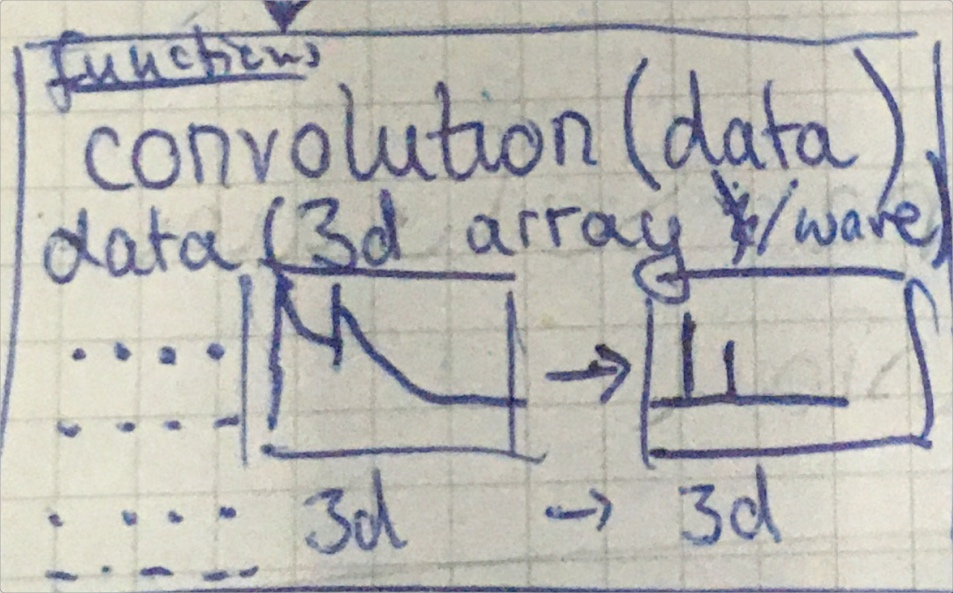 functions
convolution (data)
data (3d array /wave)
→
3d → 3d